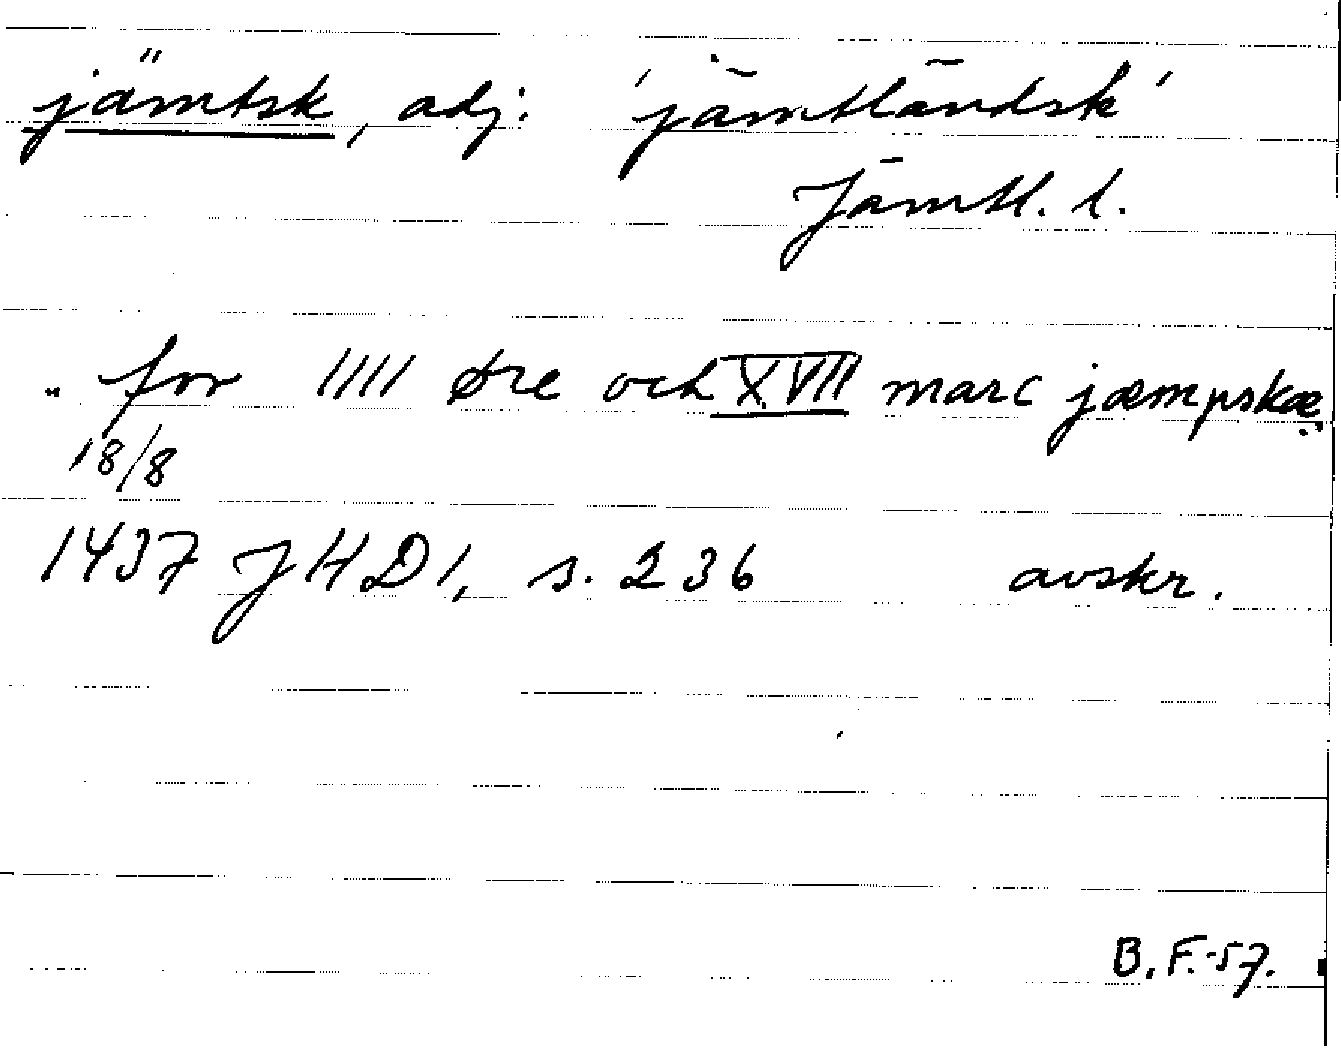 jämtsk, adj. 'jämtländsk'
Jämtl. l.
" for IIII øre och XVII marc jæmpskæ"
18/8
1437 JHD1, s. 236 avskr.
B.F.-57.